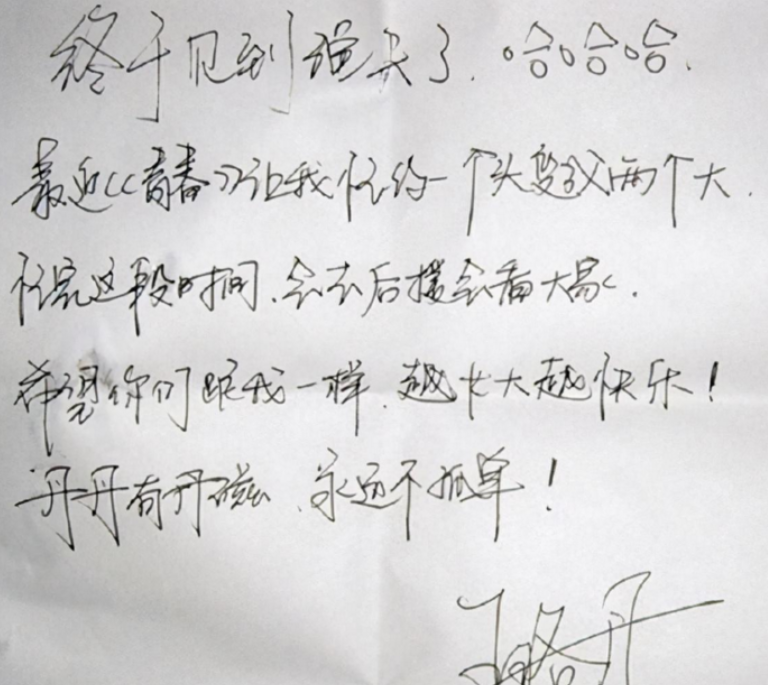 终于见到了.哈哈哈.
最近《青春》让我忙的一个头变成两个大.
忙完这段时间.会去后援会看大家.
希望你们跟我一样.越长大越快乐！
丹丹有丹磁.永远不孤单！
珞丹